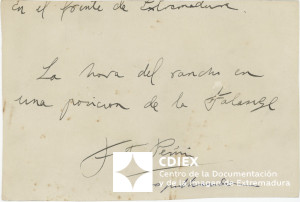 En el frente de Extremadura.
La hora del rancho en
una posicion de la Falange
CDIEX
Centro de la Documentación
y de la Imagen de Extremadura